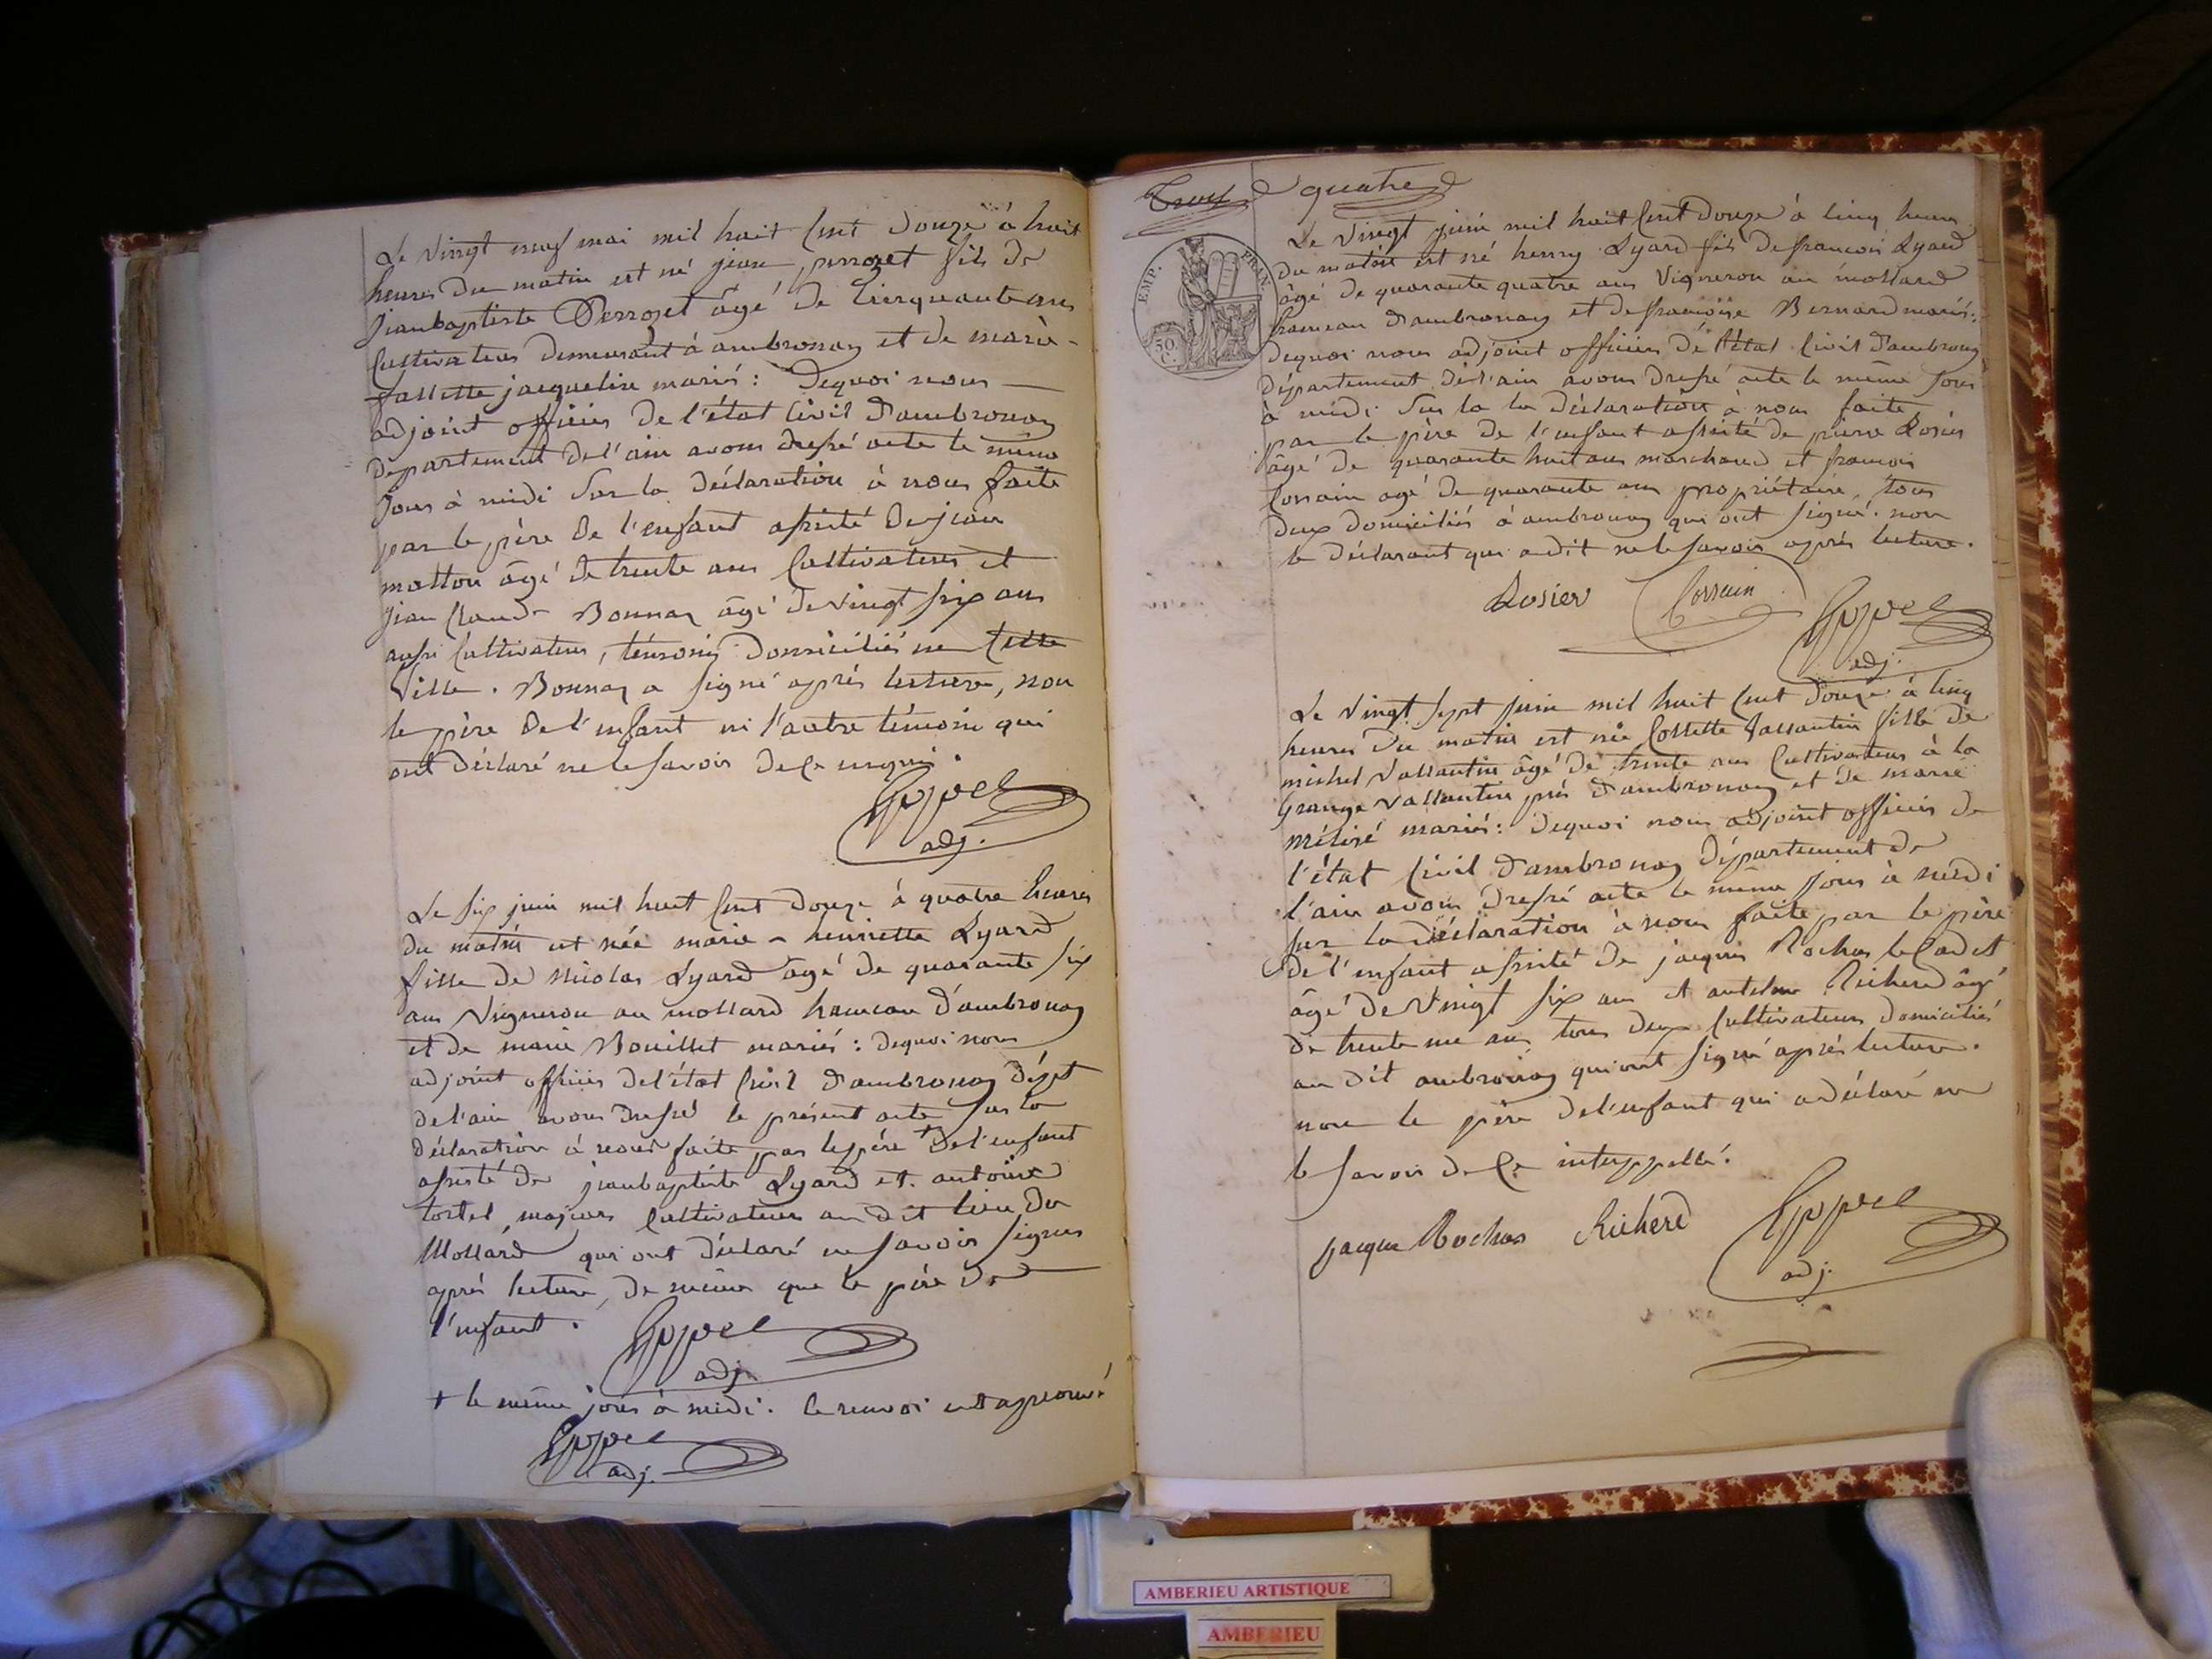 Le vingt neuf mai mil huit Cent douze à huit
heures du matin est né jean perrozet fils de
jeanbaptiste Perrozet âgé de Cinquante ans
Cultivateur demeurant à ambronay et de marie-
jacqueline mariés : dequoi nous
adjoint officier de l'état Civil d'ambronay
département de l'ain avons dressé acte le même
Jour à midi Sur la déclaration à nous faite
par le père de l'enfant assisté de jean
motton âgé de trente ans Cultivateur et
jean Claude Bonnaz âgé de vingt six ans
aussi Cultivateur, témoins domiciliés en Cette
Ville . Bonnaz a signé après lecture, non
le père de l'enfant ni l'autre témoin qui
ont déclaré ne le savoir de Ce
adj.
Le six juin mil huit Cent douze à quatre heures
du matin est née marie - henriette Lyard
fille de nicolas Lyard âgé de quarante six
ans Vigneron au mollard hameau d'ambronay
et de marie Bouillet mariés : dequoi nous
adjoint officier de l'état Civil d'ambronay dépt
de l'ain avons dressé le présent acte sur la
déclaration à nous faite par le père + de l'enfant
assisté de jeanbaptiste Lyard et antoine
tortel, majeurs Cultivateurs au dit lieu du
Mollard qui ont déclaré ne savoir signer
après lecture, de même que le père de
l'enfant .
adj.
+ le même jour à midi . le renvoi est approuvé
adj.
Trois quatre
EMP. FRAN.
50 C.
Le vingt juin mil huit Cent douze à Cinq heures
du matin est né henry Lyard fils de francois Lyard
âgé de quarante quatre ans Vigneron au mollard
hameau d'ambronay et de francoise Bernard mariés :
dequoi nous adjoint officier de l'état Civil d'ambronay
département de l'ain avons dressé acte le même jour
à midi Sur la la déclaration à nous faite
par le père de l'enfant assisté de pierre Rosier
âgé de quarante huit ans marchand et francois
Corrain agé de quarante ans propriétaire, tous
deux domiciliés à ambronay qui ont signé. non
le déclarant qui a dit ne le savoir après lecture.
Rosier Corrain
adj.
Le vingt sept juin mil huit Cent douze à Cinq
heures du matin est née Collette Vallantin fille de
michel Vallantin âgé de trente ans Cultivateur à la
Grange Vallantin près d'ambronay et de marie
mariés : dequoi nous adjoint officier de
l'état Civil d'ambronay département de
l'ain avons dressé acte le même jour à midi
sur la déclaration à nous faite par le père
de l'enfant assisté de jacques Rochas le Cadet
âgé de vingt six ans et antelme Richerd âgé
de trente un ans tous deux Cultivateurs domiciliés
au dit ambronay qui ont signé après lecture.
non le père de l'enfant qui a déclaré ne
le savoir de Ce interppellé.
jacque Rochas Richerd
adj.
AMBERIEU ARTISTIQUE
AMBERIEU